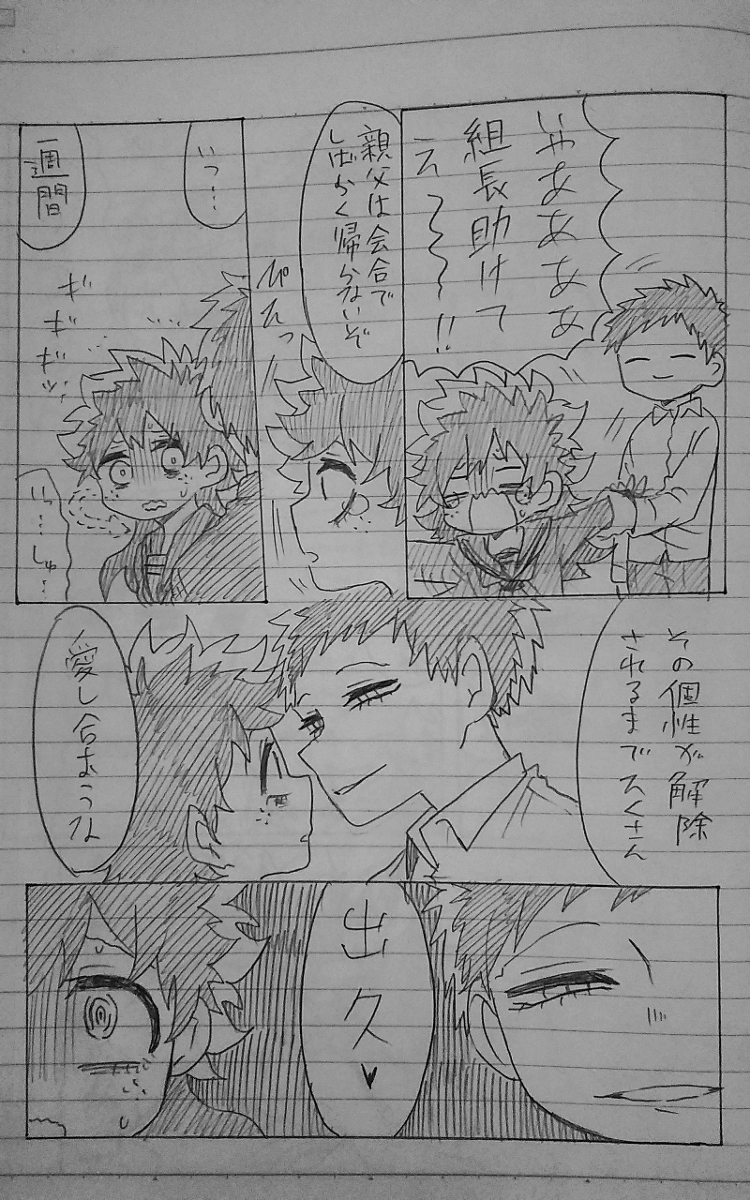 いやああああ
組長助けて
え〜〜〜!!
親父は会合で
しばらく帰らないぞ
ぴたっ
いっ…
一週間
ギギギギッ
いっ…しゅ…
その個性が解除
されるまでたくさん
愛し合おうな
出久♥